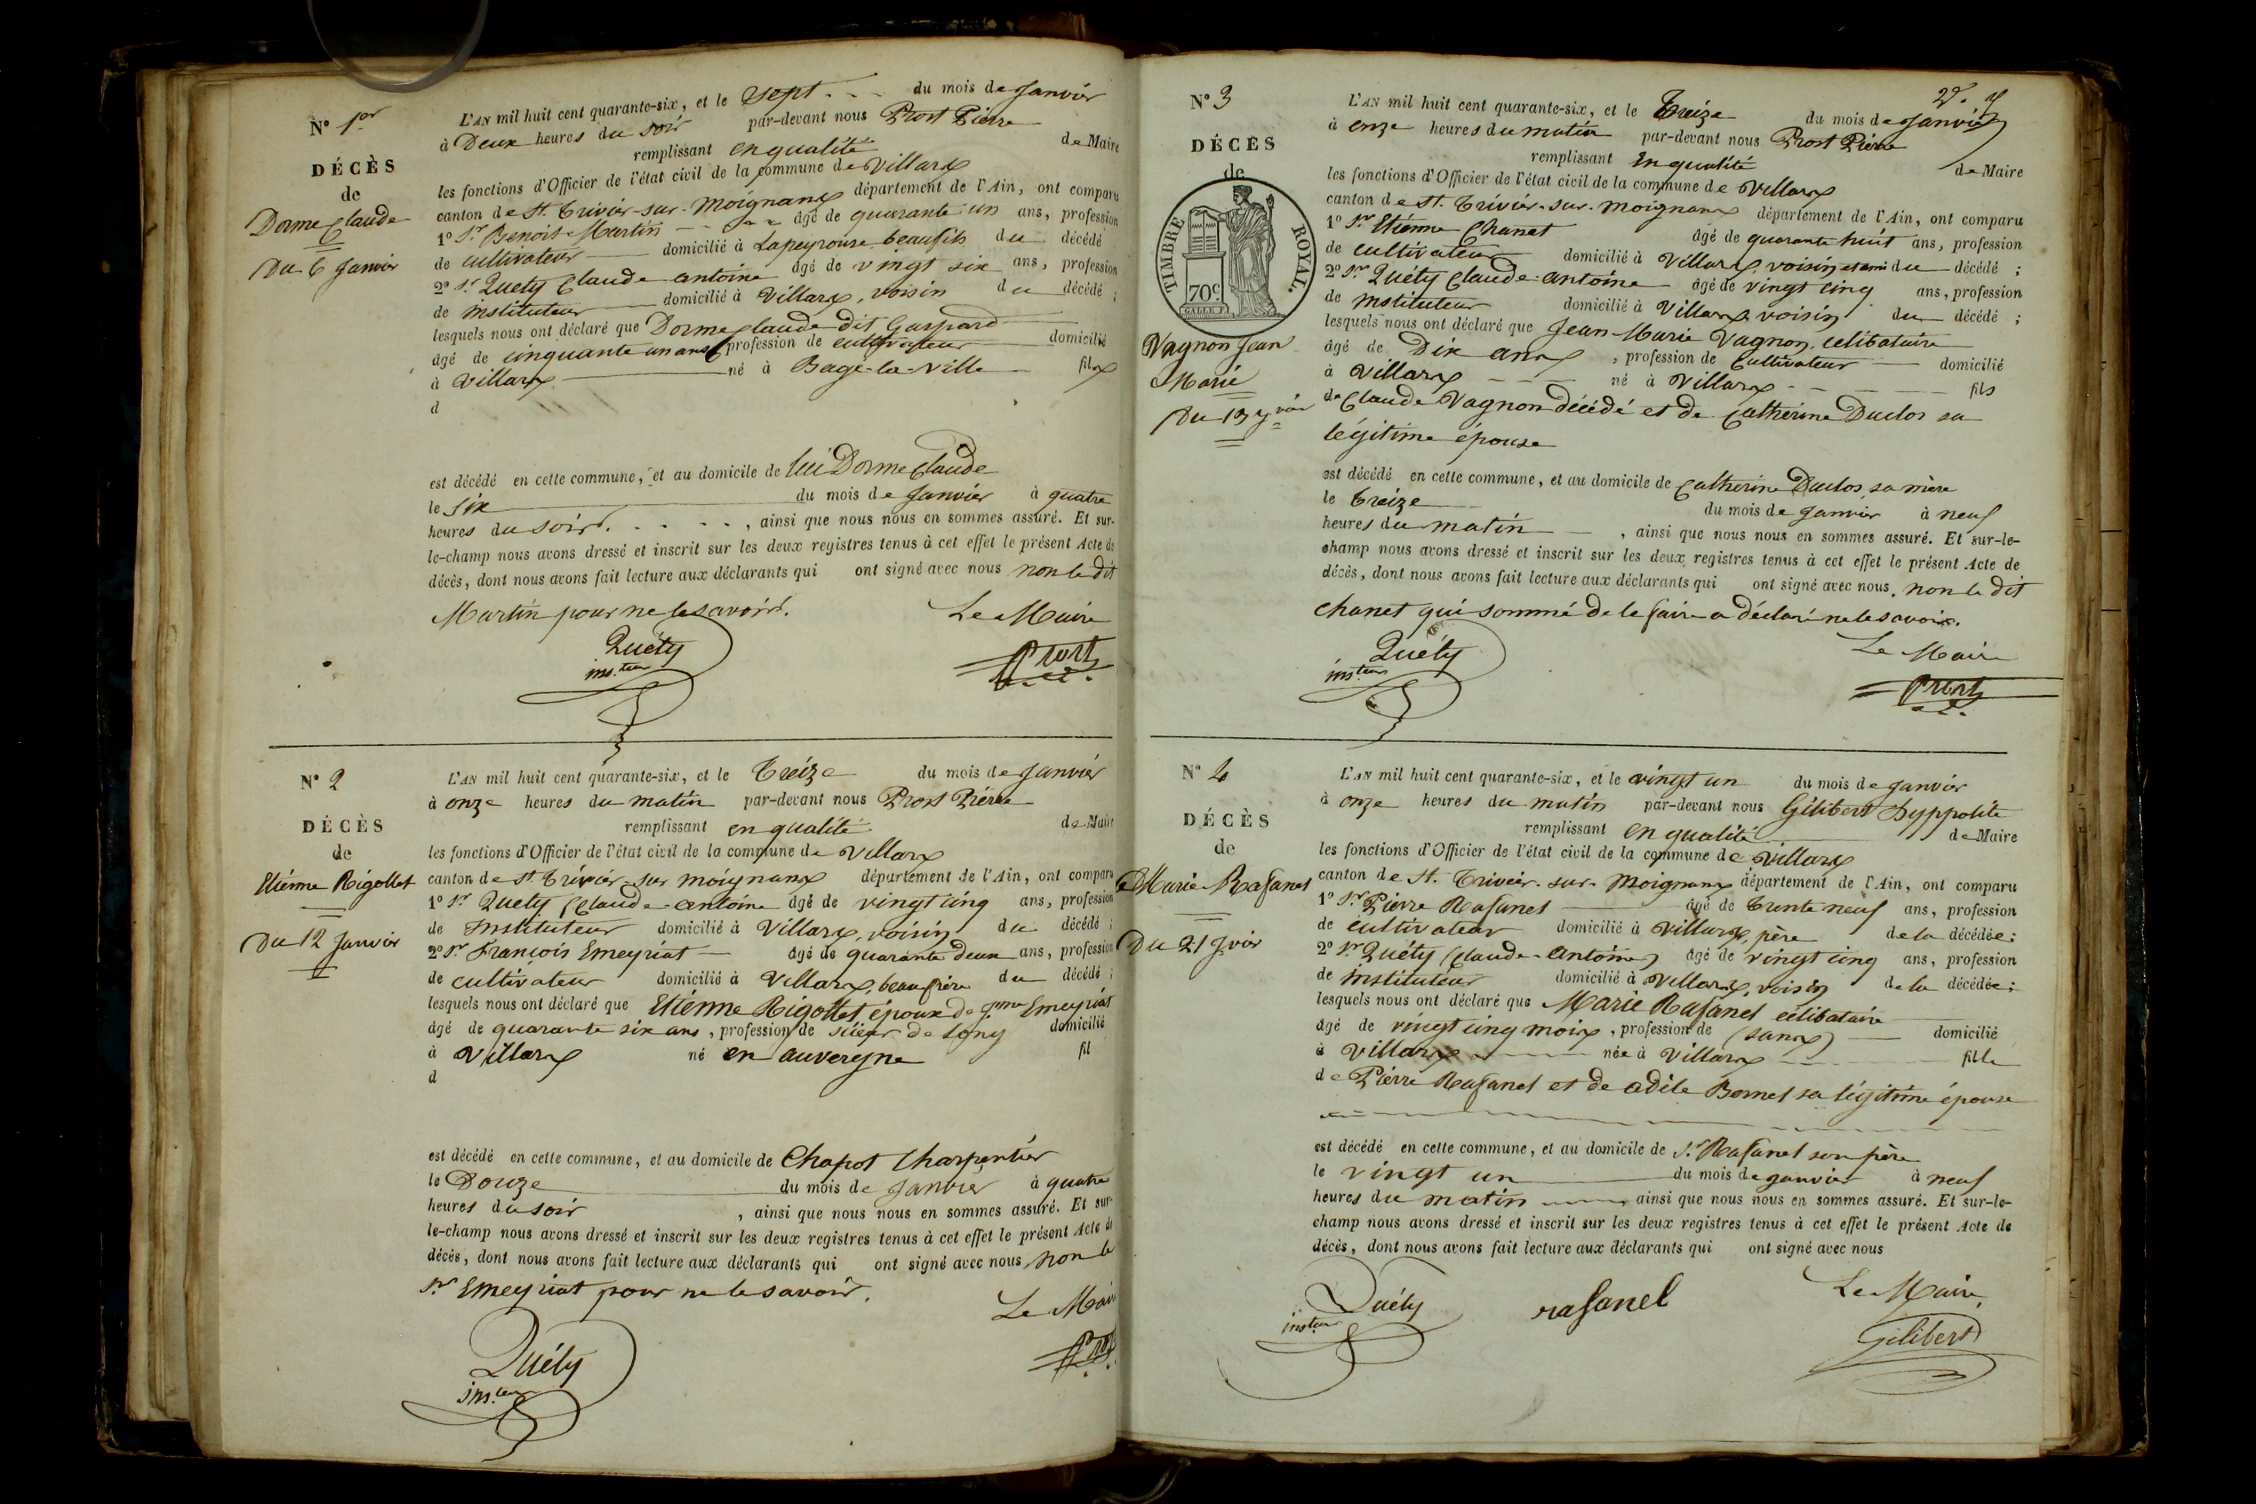 N° 1er
DÉCÈS
de
Dorme Claude
Du 6 Janvier
L'AN mil huit cent quarante-six, et le sept du mois de Janvier
à Deux heures du soir par-devant nous Prost Pierre
remplissant en qualité de Maire
les fonctions d'Officier de l'état civil de la commune de Villars
canton de St. Trivier-sur-Moignans département de l'Ain, ont comparu
1° Sr Benoit Martin âgé de quarante un ans, profession
de cultivateur domicilié à Lapeyrouse beaufils du décédé
2° Sr Quéty Claude antoine âgé de vingt six ans, profession
de instituteur domicilié à Villars, voisin du décédé ;
lesquels nous ont déclaré que Dorme Claude dit Gaspard
âgé de cinquante un ans, profession de cultivateur domicilié
à Villars né à Bagé-la-ville fils
d
est décédé en cette commune, et au domicile de lui Dorme Claude
le six du mois de Janvier à quatre
heures du soir, ainsi que nous nous en sommes assuré. Et sur-
le-champ nous avons dressé et inscrit sur les deux registres tenus à cet effet le présent Acte de
décès, dont nous avons fait lecture aux déclarants qui ont signé avec nous non le dit
Martin pour ne le savoir. Le Maire
Quéty Prost
inst.teur
N° 2
DÉCÈS
de
Etiénne Rigollet
Du 12 Janvier
L'AN mil huit cent quarante-six, et le Treize du mois de Janvier
à onze heures du matin par-devant nous Prost Pierre
remplissant en qualité de Maire
les fonctions d'Officier de l'état civil de la commune de Villars
canton de St Trivier-sur moignans département de l'Ain, ont comparu
1° Sr Quéty Claude-antoine âgé de vingt cinq ans, profession
de Instituteur domicilié à Villars, voisin du décédé ;
2° Sr François Emeyriat âgé de quarante deux ans, profession
de cultivateur domicilié à Villars, beaufrère du décédé ;
lesquels nous ont déclaré que Etiénne Rigollet époux de Emeyriat
âgé de quarante six ans, profession de scieur de long domicilié
à Villars né en auvergne fil
d
est décédé en cette commune, et au domicile de Chapot Charpentier
le Douze du mois de Janvier à quatre
heures du soir, ainsi que nous nous en sommes assuré. Et sur-
le-champ nous avons dressé et inscrit sur les deux registres tenus à cet effet le présent Acte de
décès, dont nous avons fait lecture aux déclarants qui ont signé avec nous non le
Sr Emeyriat pour ne le savoir. Le Maire
Quéty Prost
inst.teur
N° 3
DÉCÈS
de
TIMBRE ROYAL.
70c
Vagnon Jean
Marie
Du 13 Jvier
L'AN mil huit cent quarante-six, et le Treize du mois de Janvier
à onze heures du matin par-devant nous Prost Pierre
remplissant en qualité de Maire
les fonctions d'Officier de l'état civil de la commune de Villars
canton de St. Trivier-sur-moignans département de l'Ain, ont comparu
1° Sr Etiénne Chanet âgé de quarante huit ans, profession
de cultivateur domicilié à Villars, voisin et ami du décédé ;
2° Sr Quéty Claude-antoine âgé de vingt cinq ans, profession
de instituteur domicilié à Villars, voisin du décédé ;
lesquels nous ont déclaré que Jean-Marie Vagnon, célibataire
âgé de Dix ans, profession de Cultivateur domicilié
à Villars né à Villars fils
de Claude Vagnon décédé et de Catherine Duclos sa
légitime épouse
est décédé en cette commune, et au domicile de Catherine Duclos, sa mère
le Treize du mois de Janvier à neuf
heures du matin, ainsi que nous nous en sommes assuré. Et sur-le-
champ nous avons dressé et inscrit sur les deux registres tenus à cet effet le présent Acte de
décès, dont nous avons fait lecture aux déclarants qui ont signé avec nous, non le dit
Chanet qui sommé de le faire a déclaré ne le savoir.
Le Maire
Quéty Prost
inst.teur
N° 4
DÉCÈS
de
Marie Rafanel
Du 21 Jvier
L'AN mil huit cent quarante-six, et le vingt un du mois de Janvier
à onze heures du matin par-devant nous Gilibert hyppolite
remplissant en qualité de Maire
les fonctions d'Officier de l'état civil de la commune de Villars
canton de St. Trivier-sur-Moignans département de l'Ain, ont comparu
1° Sr Pierre Rafanel âgé de trente neuf ans, profession
de cultivateur domicilié à Villars, père de la décédée ;
2° Sr Quéty (Claude-antoine) âgé de vingt cinq ans, profession
de instituteur domicilié à Villars, voisin de la décédée ;
lesquels nous ont déclaré que Marie Rafanel célibataire
âgé de vingt cinq mois, profession de (sans) domicilié
à Villars née à Villars fille
de Pierre Rafanel et de adèle Bornel sa légitime épouse
est décédé en cette commune, et au domicile de Sr Rafanel son père
le vingt un du mois de Janvier à neuf
heures du matin, ainsi que nous nous en sommes assuré. Et sur-le-
champ nous avons dressé et inscrit sur les deux registres tenus à cet effet le présent Acte de
décès, dont nous avons fait lecture aux déclarants qui ont signé avec nous
Le Maire,
Quéty rafanel Gilibert
inst.teur